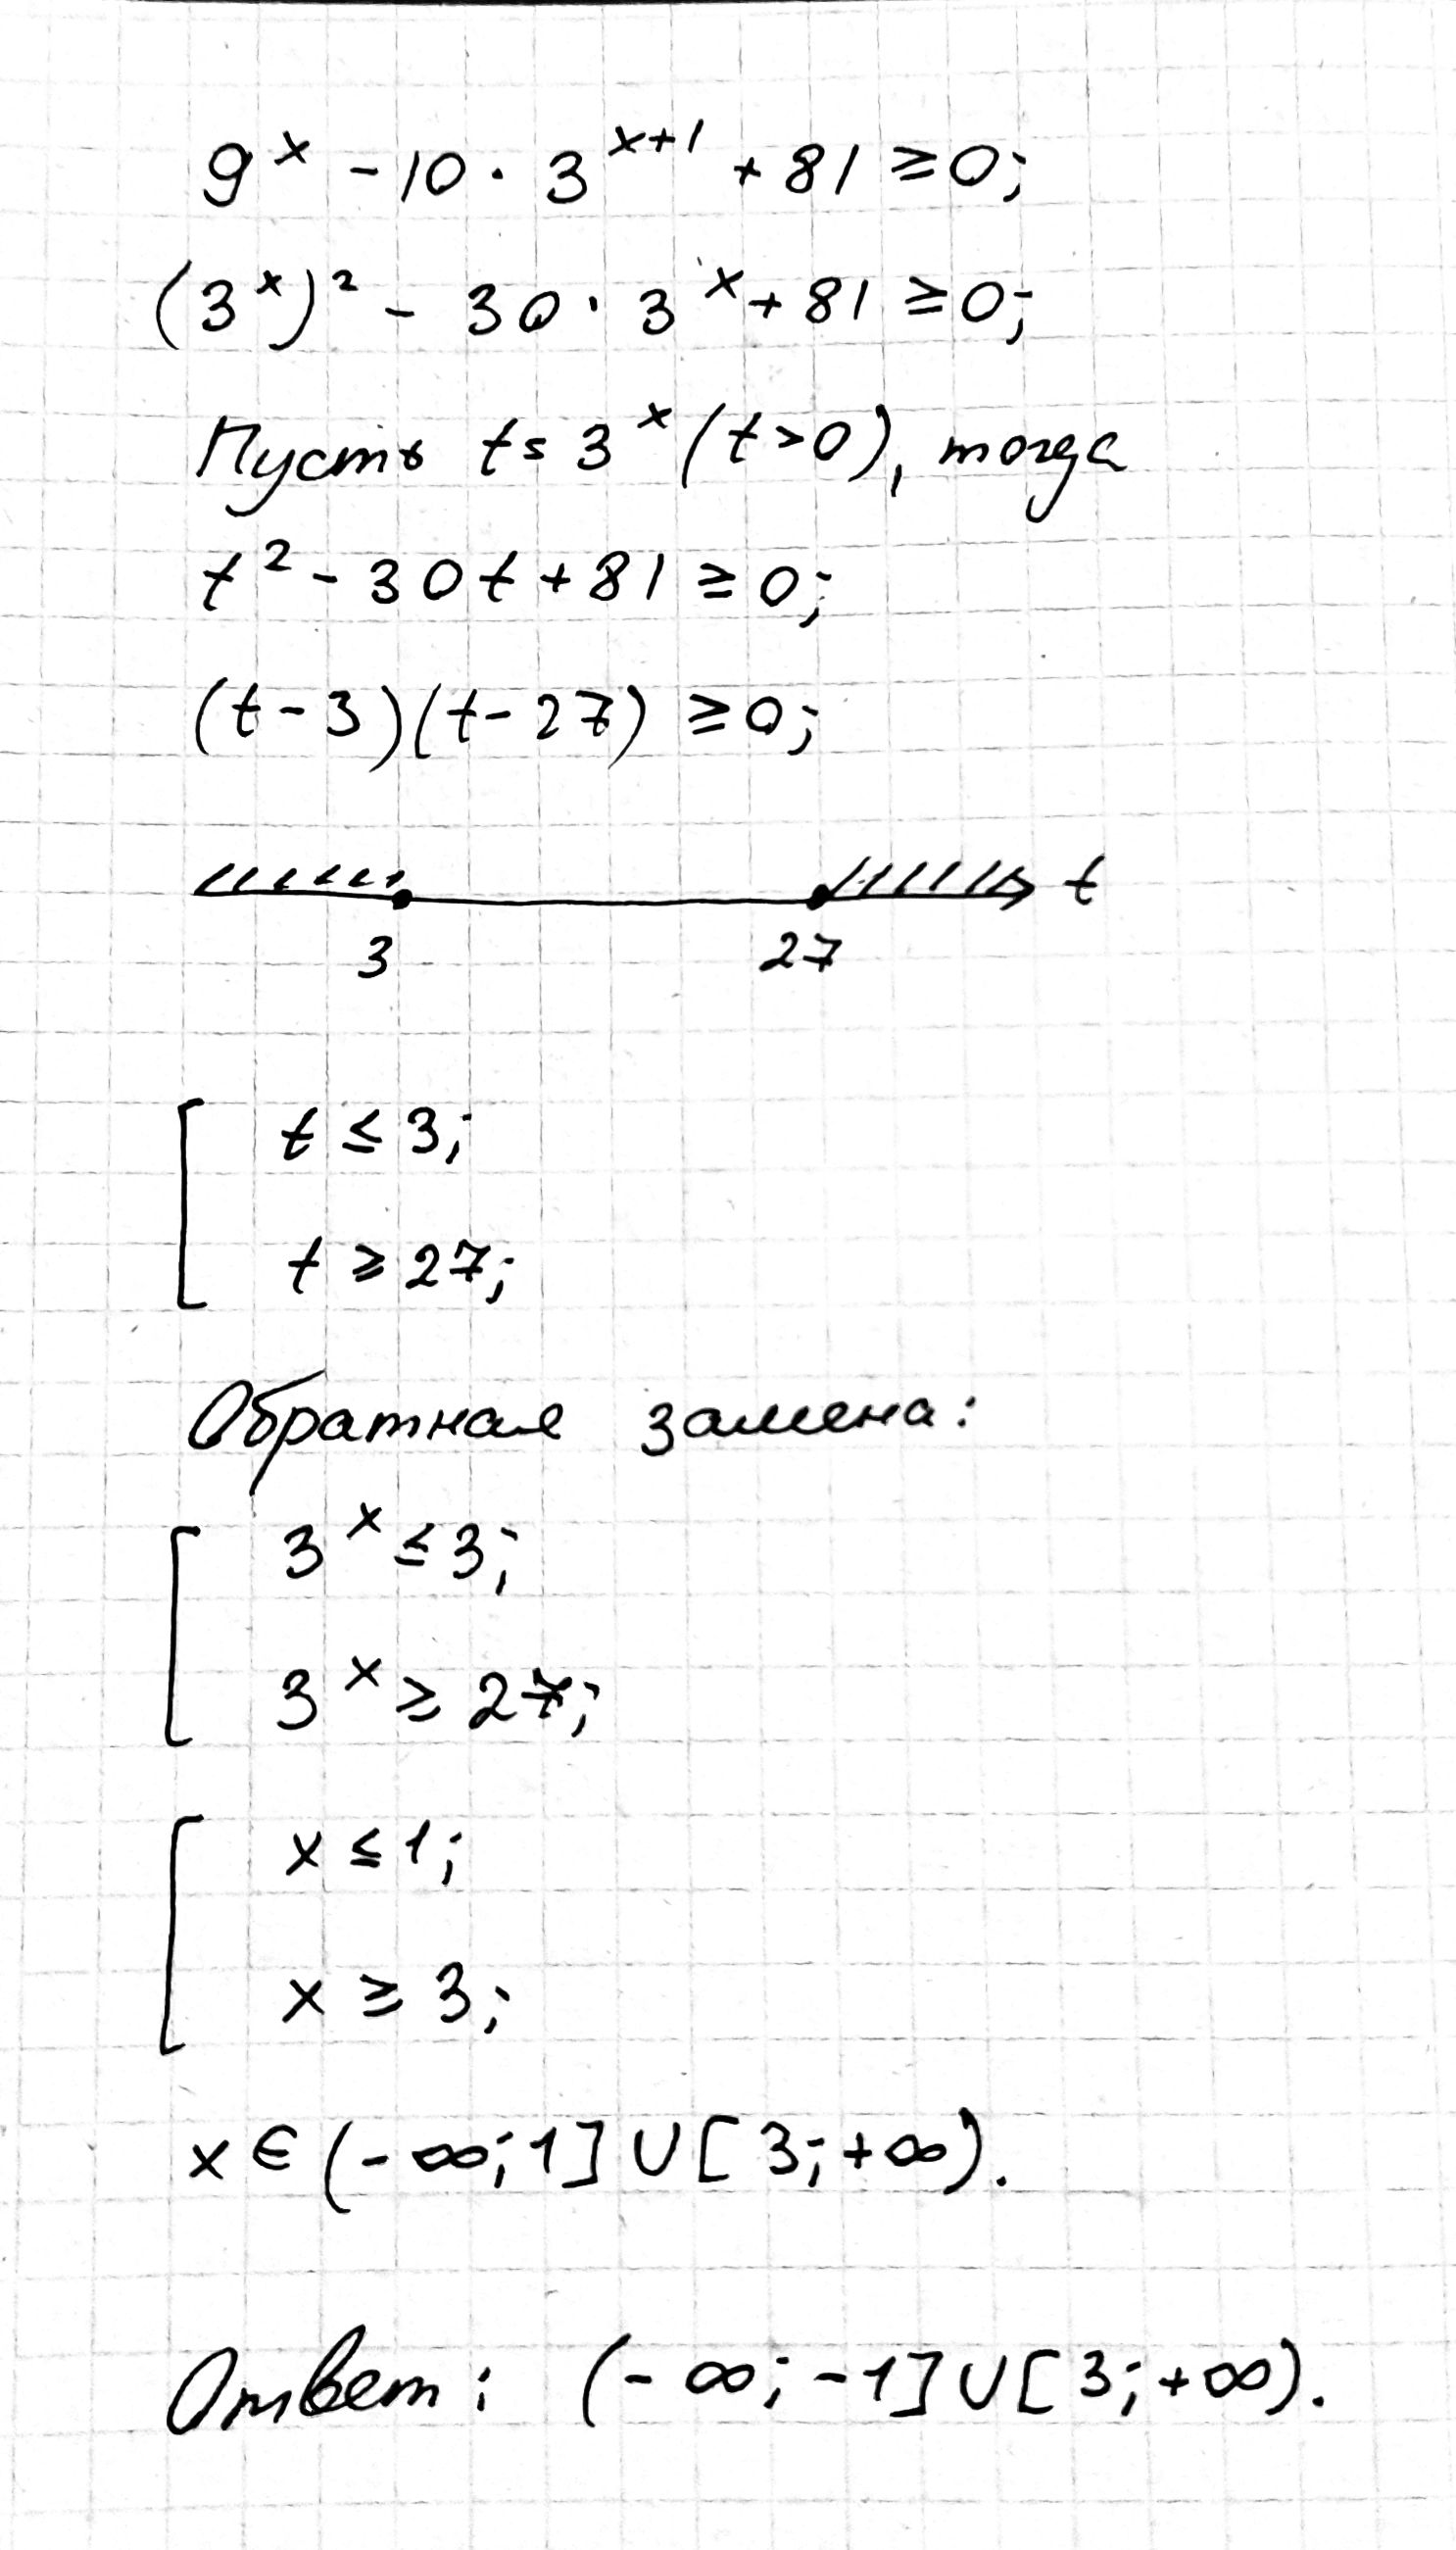 9^x - 10 · 3^{x+1} + 81 ≥ 0;
(3^x)² - 30 · 3^x + 81 ≥ 0;
Пусть t = 3^x (t > 0), тогда
t² - 30t + 81 ≥ 0;
(t - 3)(t - 27) ≥ 0;
t
3 27
t ≤ 3;
t ≥ 27;
Обратная замена:
3^x ≤ 3;
3^x ≥ 27;
x ≤ 1;
x ≥ 3;
x ∈ (-∞; 1] ∪ [3; +∞).
Ответ: (-∞; -1] ∪ [3; +∞).